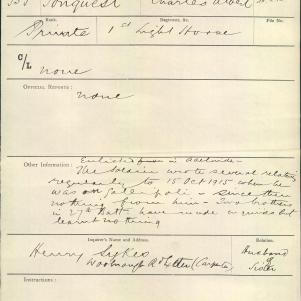 Conquest Charles Albert
Rank. Regiment, &c. File No.
Private 1st Light Horse
C/L
none
OFFICIAL REPORTS:
none
Other Information: Enlisted in Adelaide -
The soldier wrote several relatives
regularly to 15 Oct 1915 when he
was on Gallipoli - since then
nothing from him - Two brothers
in 27th Batt have made but
learnt nothing
Inquirer's Name and Address. Relation.
Henry Sykes Husband
of
Sister
Instructions: